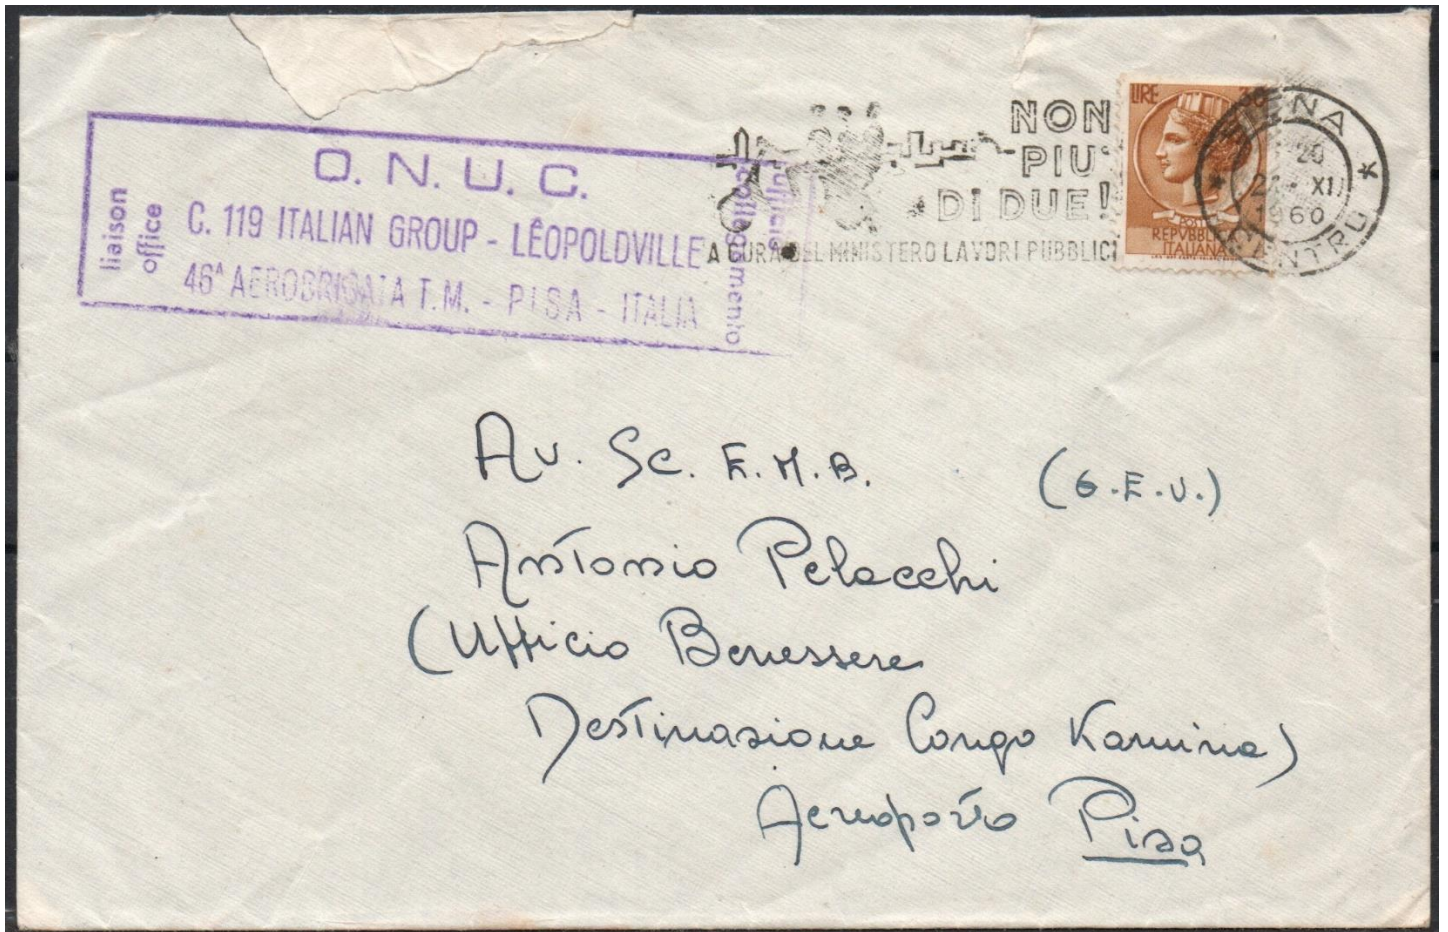 O. N. U. C.
liaison
office
C. 119 ITALIAN GROUP - LÊOPOLDVILLE
46ᴬ AEROBRIGATA T.M. - PISA - ITALIA
ufficio
collegamento
NON
PIU'
DI DUE!
A CURA DEL MINISTERO LAVORI PUBBLICI
LIRE
POSTE
REPVBBLICA
ITALIANA
SIENA
20
XI
1960
CENTRO
Av. Sc. E.M.B. (G.E.V.)
Antonio Pelacchi
(Ufficio Benessere
Destinazione Congo Kamina)
Aeroporto Pisa